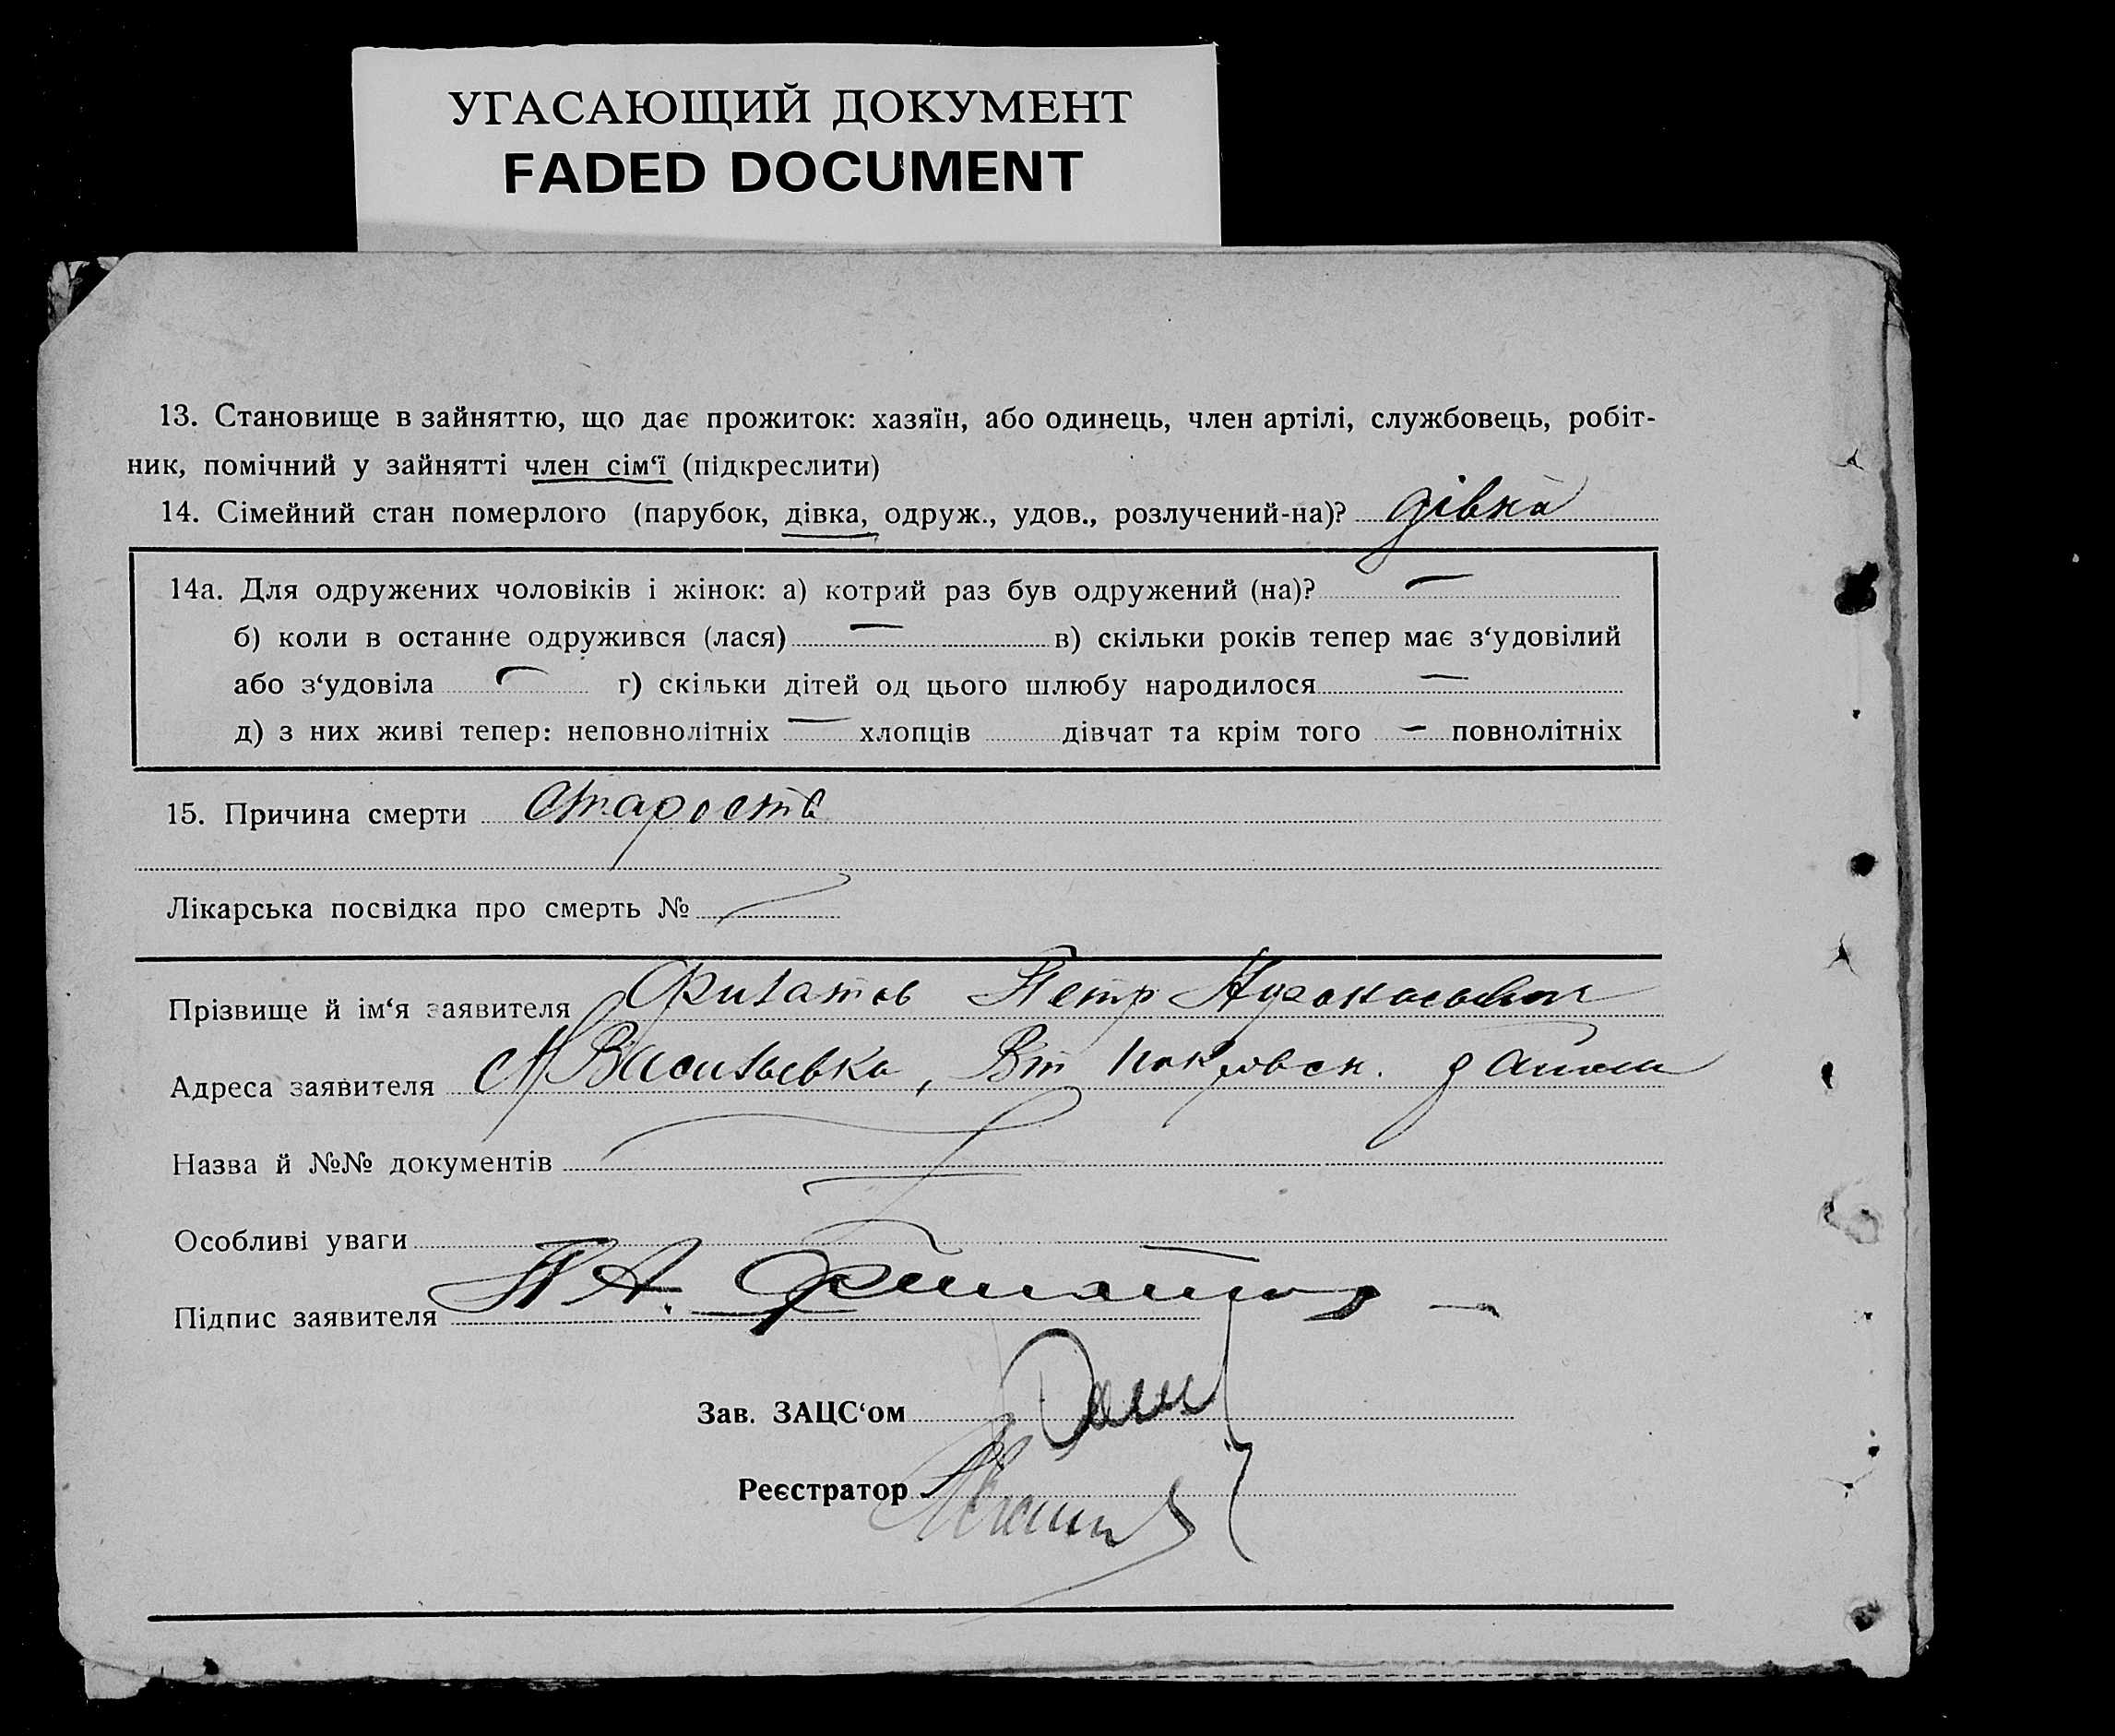 УГАСАЮЩИЙ ДОКУМЕНТ
FADED DOCUMENT
13. Становище в зайняттю, що дає прожиток: хазяїн, або одинець, член артілі, службовець, робіт-
ник, помічний у зайнятті член сім‘ї (підкреслити)
14. Сімейний стан померлого (парубок, дівка, одруж., удов., розлучений-на)? дівка
14а. Для одружених чоловіків і жінок: а) котрий раз був одружений (на)? —
б) коли в останне одружився (лася) — в) скільки років тепер має з‘удовілий
або з‘удовіла — г) скільки дітей од цього шлюбу народилося —
д) з них живі тепер: неповнолітніх — хлопців дівчат та крім того — повнолітніх
15. Причина смерти старость
Лікарська посвідка про смерть №
Прізвище й ім‘я заявителя Филатов Петр
Адреса заявителя Васильевка,
Назва й №№ документів
Особливі уваги
Підпис заявителя П А. Филатов
Зав. ЗАЦС‘ом
Реєстратор